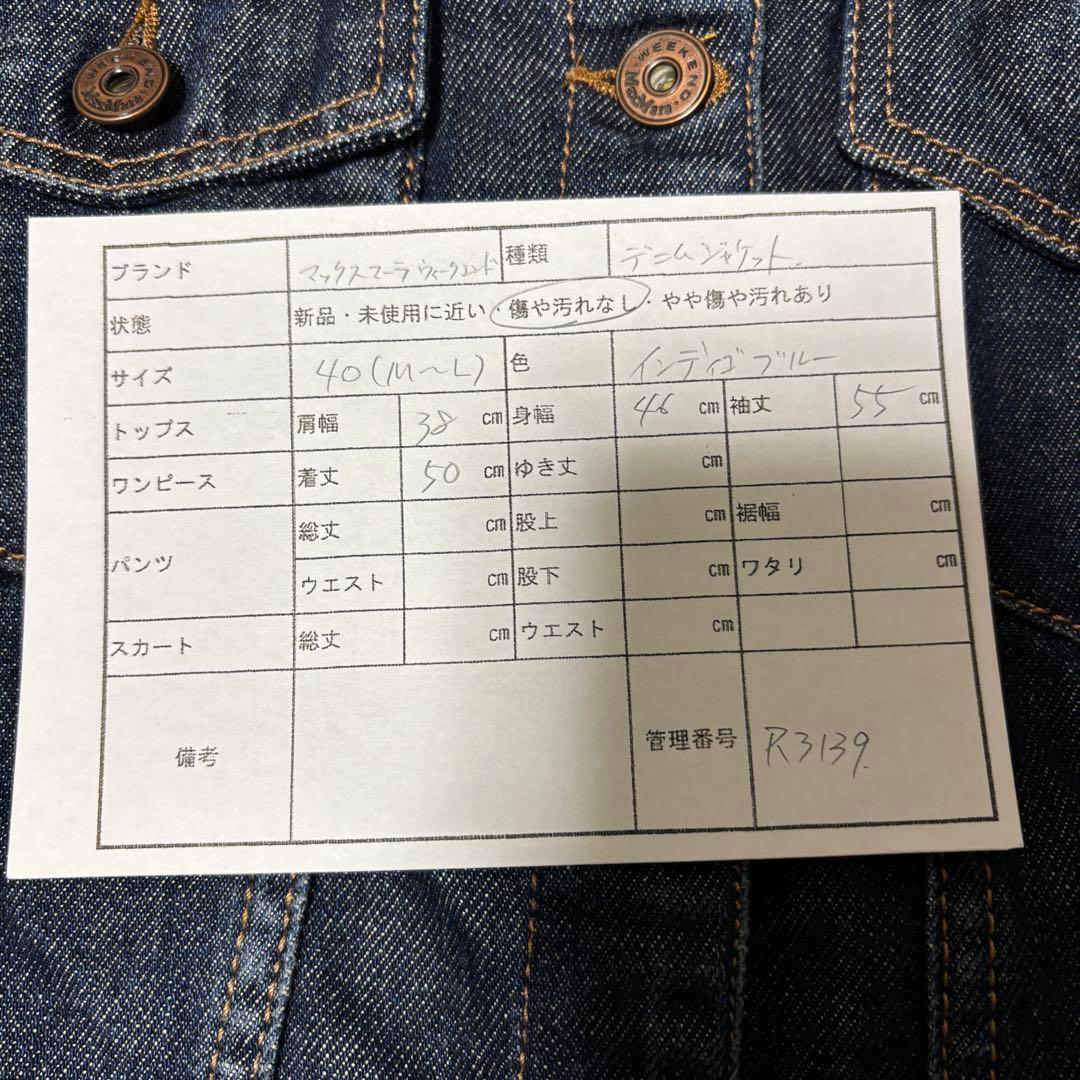 WEEKEND MaxMara
WEEKEND MaxMara
ブランド マックスマーラ ウィークエンド 種類 デニムジャケット.
状態 新品・未使用に近い・傷や汚れなし・やや傷や汚れあり
サイズ 40(M～L) 色 インディゴブルー
トップス 肩幅 38 cm 身幅 46 cm 袖丈 55 cm
ワンピース 着丈 50 cm ゆき丈 cm
パンツ 総丈 cm 股上 cm 裾幅 cm
ウエスト cm 股下 cm ワタリ cm
スカート 総丈 cm ウエスト cm
備考 管理番号 R3139.